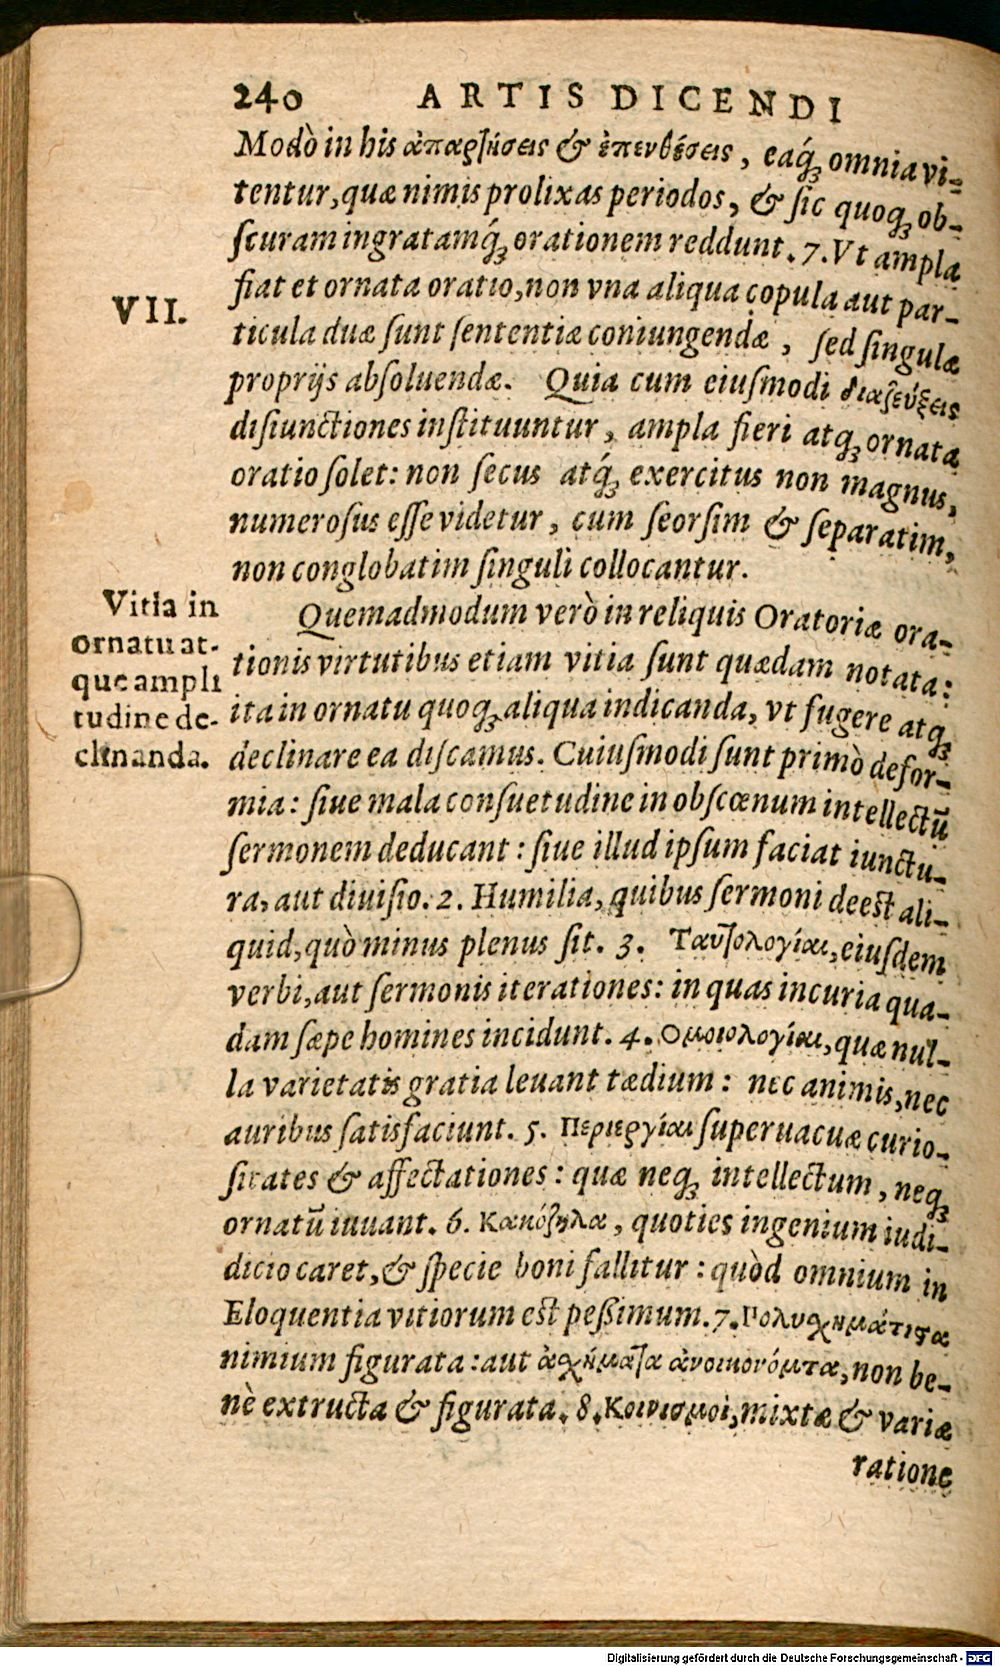 240 ARTIS DICENDI
Modò in his ἀπαρτήσεις & ἐπενθέσεις, eaq́ꝫ omnia vi-
tentur, quæ nimis prolixas periodos, & ſic quoqꝫ ob-
ſcuram ingratamq́ꝫ orationem reddunt. 7. Vt ampla
VII.
fiat et ornata oratio, non vna aliqua copula aut par-
ticula duæ ſunt ſententiæ coniungendæ, ſed ſingulæ
proprijs abſoluendæ. Quia cum eiuſmodi διαζεύξεις
diſiunctiones inſtituuntur, ampla fieri atqꝫ ornata
oratio ſolet: non ſecus atq́ꝫ exercitus non magnus,
numeroſus eſſe videtur, cum ſeorſim & ſeparatim,
non conglobatim ſinguli collocantur.
Vitia in
ornatu at-
que ampli
tudine de-
clinanda.
Quemadmodum verò in reliquis Oratoriæ ora-
tionis virtutibus etiam vitia ſunt quædam notata:
ita in ornatu quoqꝫ aliqua indicanda, vt fugere atqꝫ
declinare ea diſcamus. Cuiuſmodi ſunt primò defor-
mia: ſiue mala conſuetudine in obſcœnum intellectũ
ſermonem deducant: ſiue illud ipſum faciat iunctu-
ra, aut diuiſio. 2. Humilia, quibus ſermoni deeſt ali-
quid, quò minus plenus ſit. 3. Ταυτολογίαι, eiuſdem
verbi, aut ſermonis iterationes: in quas incuria qua-
dam ſæpe homines incidunt. 4. Ομοιολογίαι, quæ nul-
la varietatis gratia leuant tædium: nec animis, nec
auribus ſatisfaciunt. 5. Περιεργίαι ſuperuacuæ curio-
ſitates & affectationes: quæ neqꝫ intellectum, neqꝫ
ornatũ iuuant. 6. Κακόζηλα, quoties ingenium iudi-
dicio caret, & ſpecie boni fallitur: quòd omnium in
Eloquentia vitiorum eſt peßimum. 7. Πολυσχημάτιστα
nimium figurata: aut ἀσχήματα ἀνοικονόμτα, non be-
nè extructa & figurata. 8. Κοινισμοὶ, mixtæ & variæ
ratione
Digitalisierung gefördert durch die Deutsche Forschungsgemeinschaft - DFG